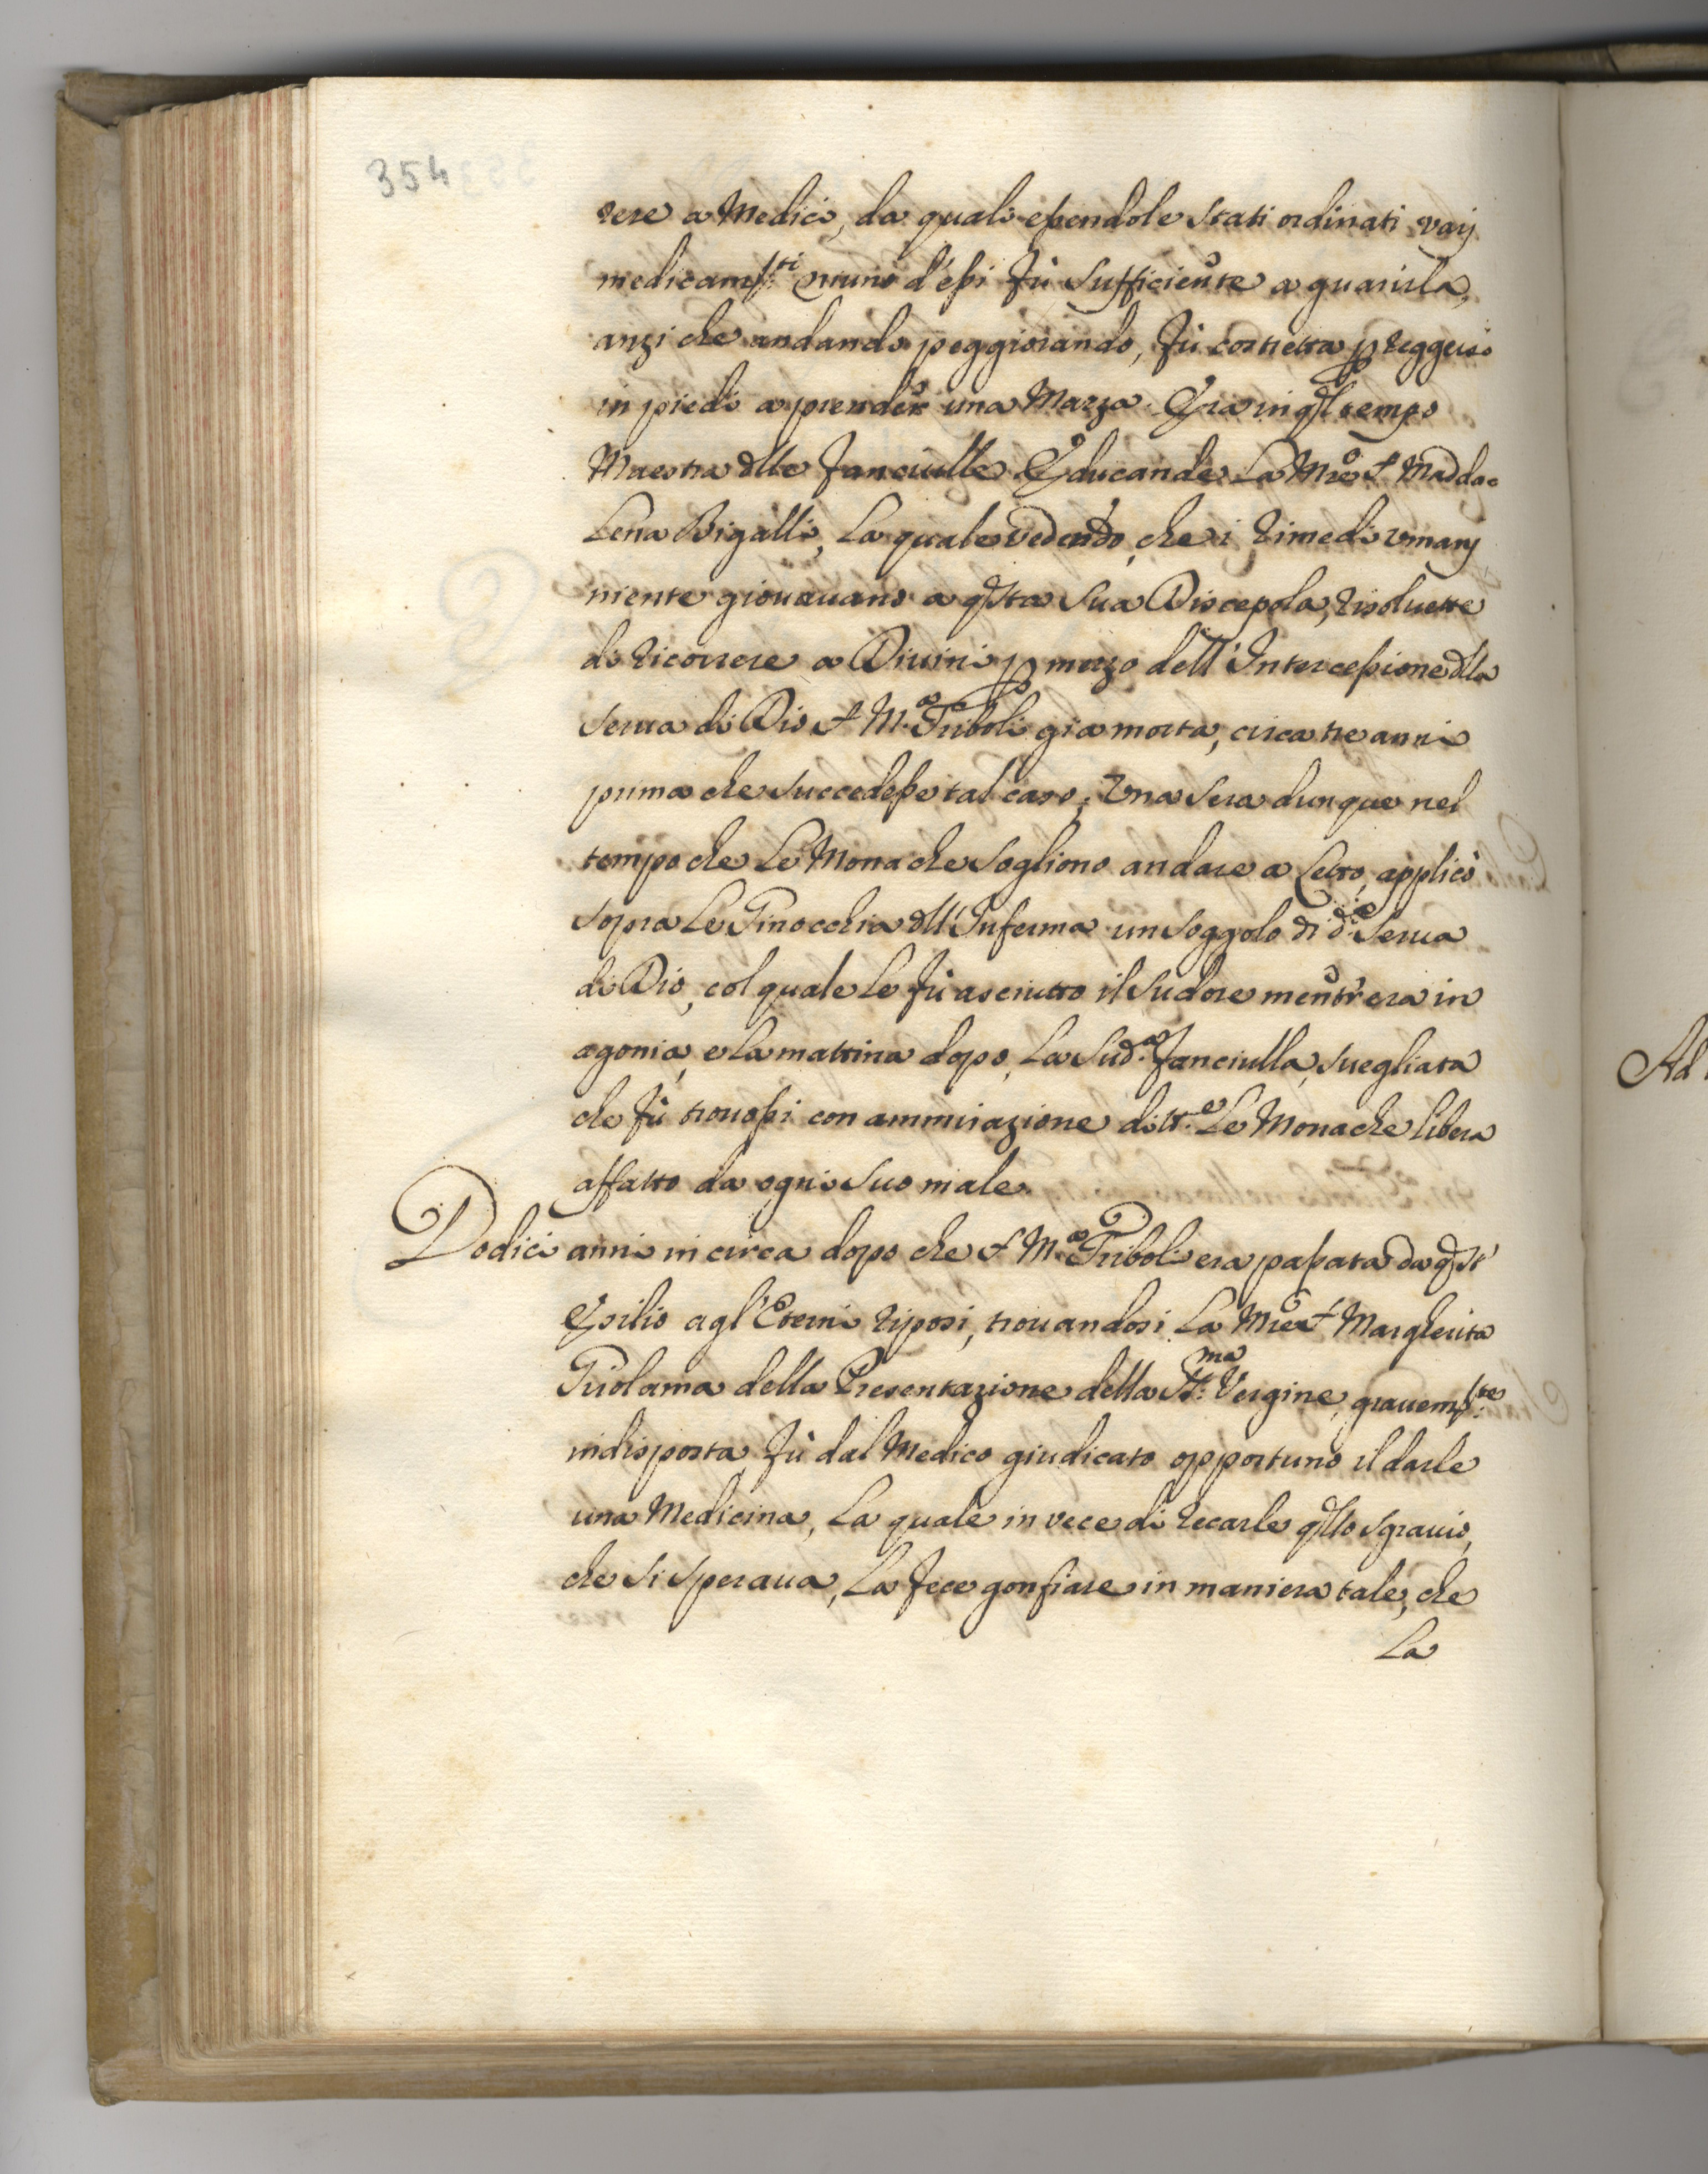 354
rere a Medici, da quali essendole stati ordinati varij
medicam:ti niuno d'essi fù sufficiente a guarirla,
anzi che andando peggiorando, fù costretta p reggersi
in piedi a prender una Mazza. Era in ql tempo
Maestra dlle fanciulle Educande La Mre Sr Madda=
Lena Bigalli, La quale vedendo, che i rimedi vmanj
niente giouauano a qsta sua Discepola, risoluette
di ricorrere a Diuini p mezzo dell'Intercessione dlla
serua di Dio Sr M.a Triboli gia morta, circa tre anni
prima che succedesse tal caso; Vna sera dunque nel
tempo che Le Monache sogliono andare a Letto, applicò
sopra Le Ginocchia dll'Inferma un soggolo di d.a Serua
di Dio, col quale Le fù asciutto il sudore mentr'era in
agonia, e La mattina dopo, La Sud.a fanciulla, suegliata
che fù trouossi con ammirazione di tt.e Le Monache libera
affatto da ogni suo male.
Dodici anni in circa dopo che Sr M.a Triboli era passata da qst'
Esilio agl'Eterni riposi, trouandosi La Mre Sr Margherita
Girolama della Presentazione della SS:ma Vergine, grauem:te
indisposta, fù dal Medico giudicato opportuno il darle
una Medicina, La quale in vece di recarle qllo sgrauio,
che si speraua, La fece gonfiare in maniera tale, che
La
Ad